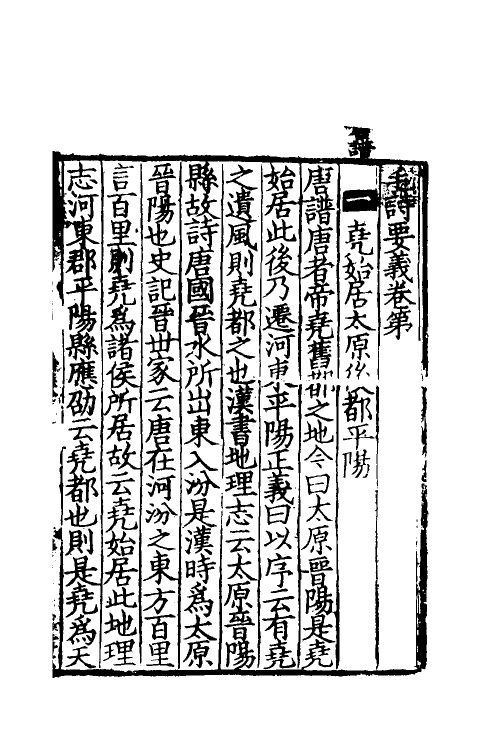 譜
毛詩要義卷第
一 堯始居太原後都平陽
唐譜唐者帝堯舊都之地今曰太原晉陽是堯
始居此後乃遷河東平陽正義曰以序云有堯
之遺風則堯都之也漢書地理志云太原晉陽
縣故詩唐國晉水所出東入汾是漢時爲太原
晉陽也史記晉世家云唐在河汾之東方百里
言百里則堯爲諸侯所居故云堯始居此地理
志河東郡平陽縣應劭云堯都也則是堯爲天